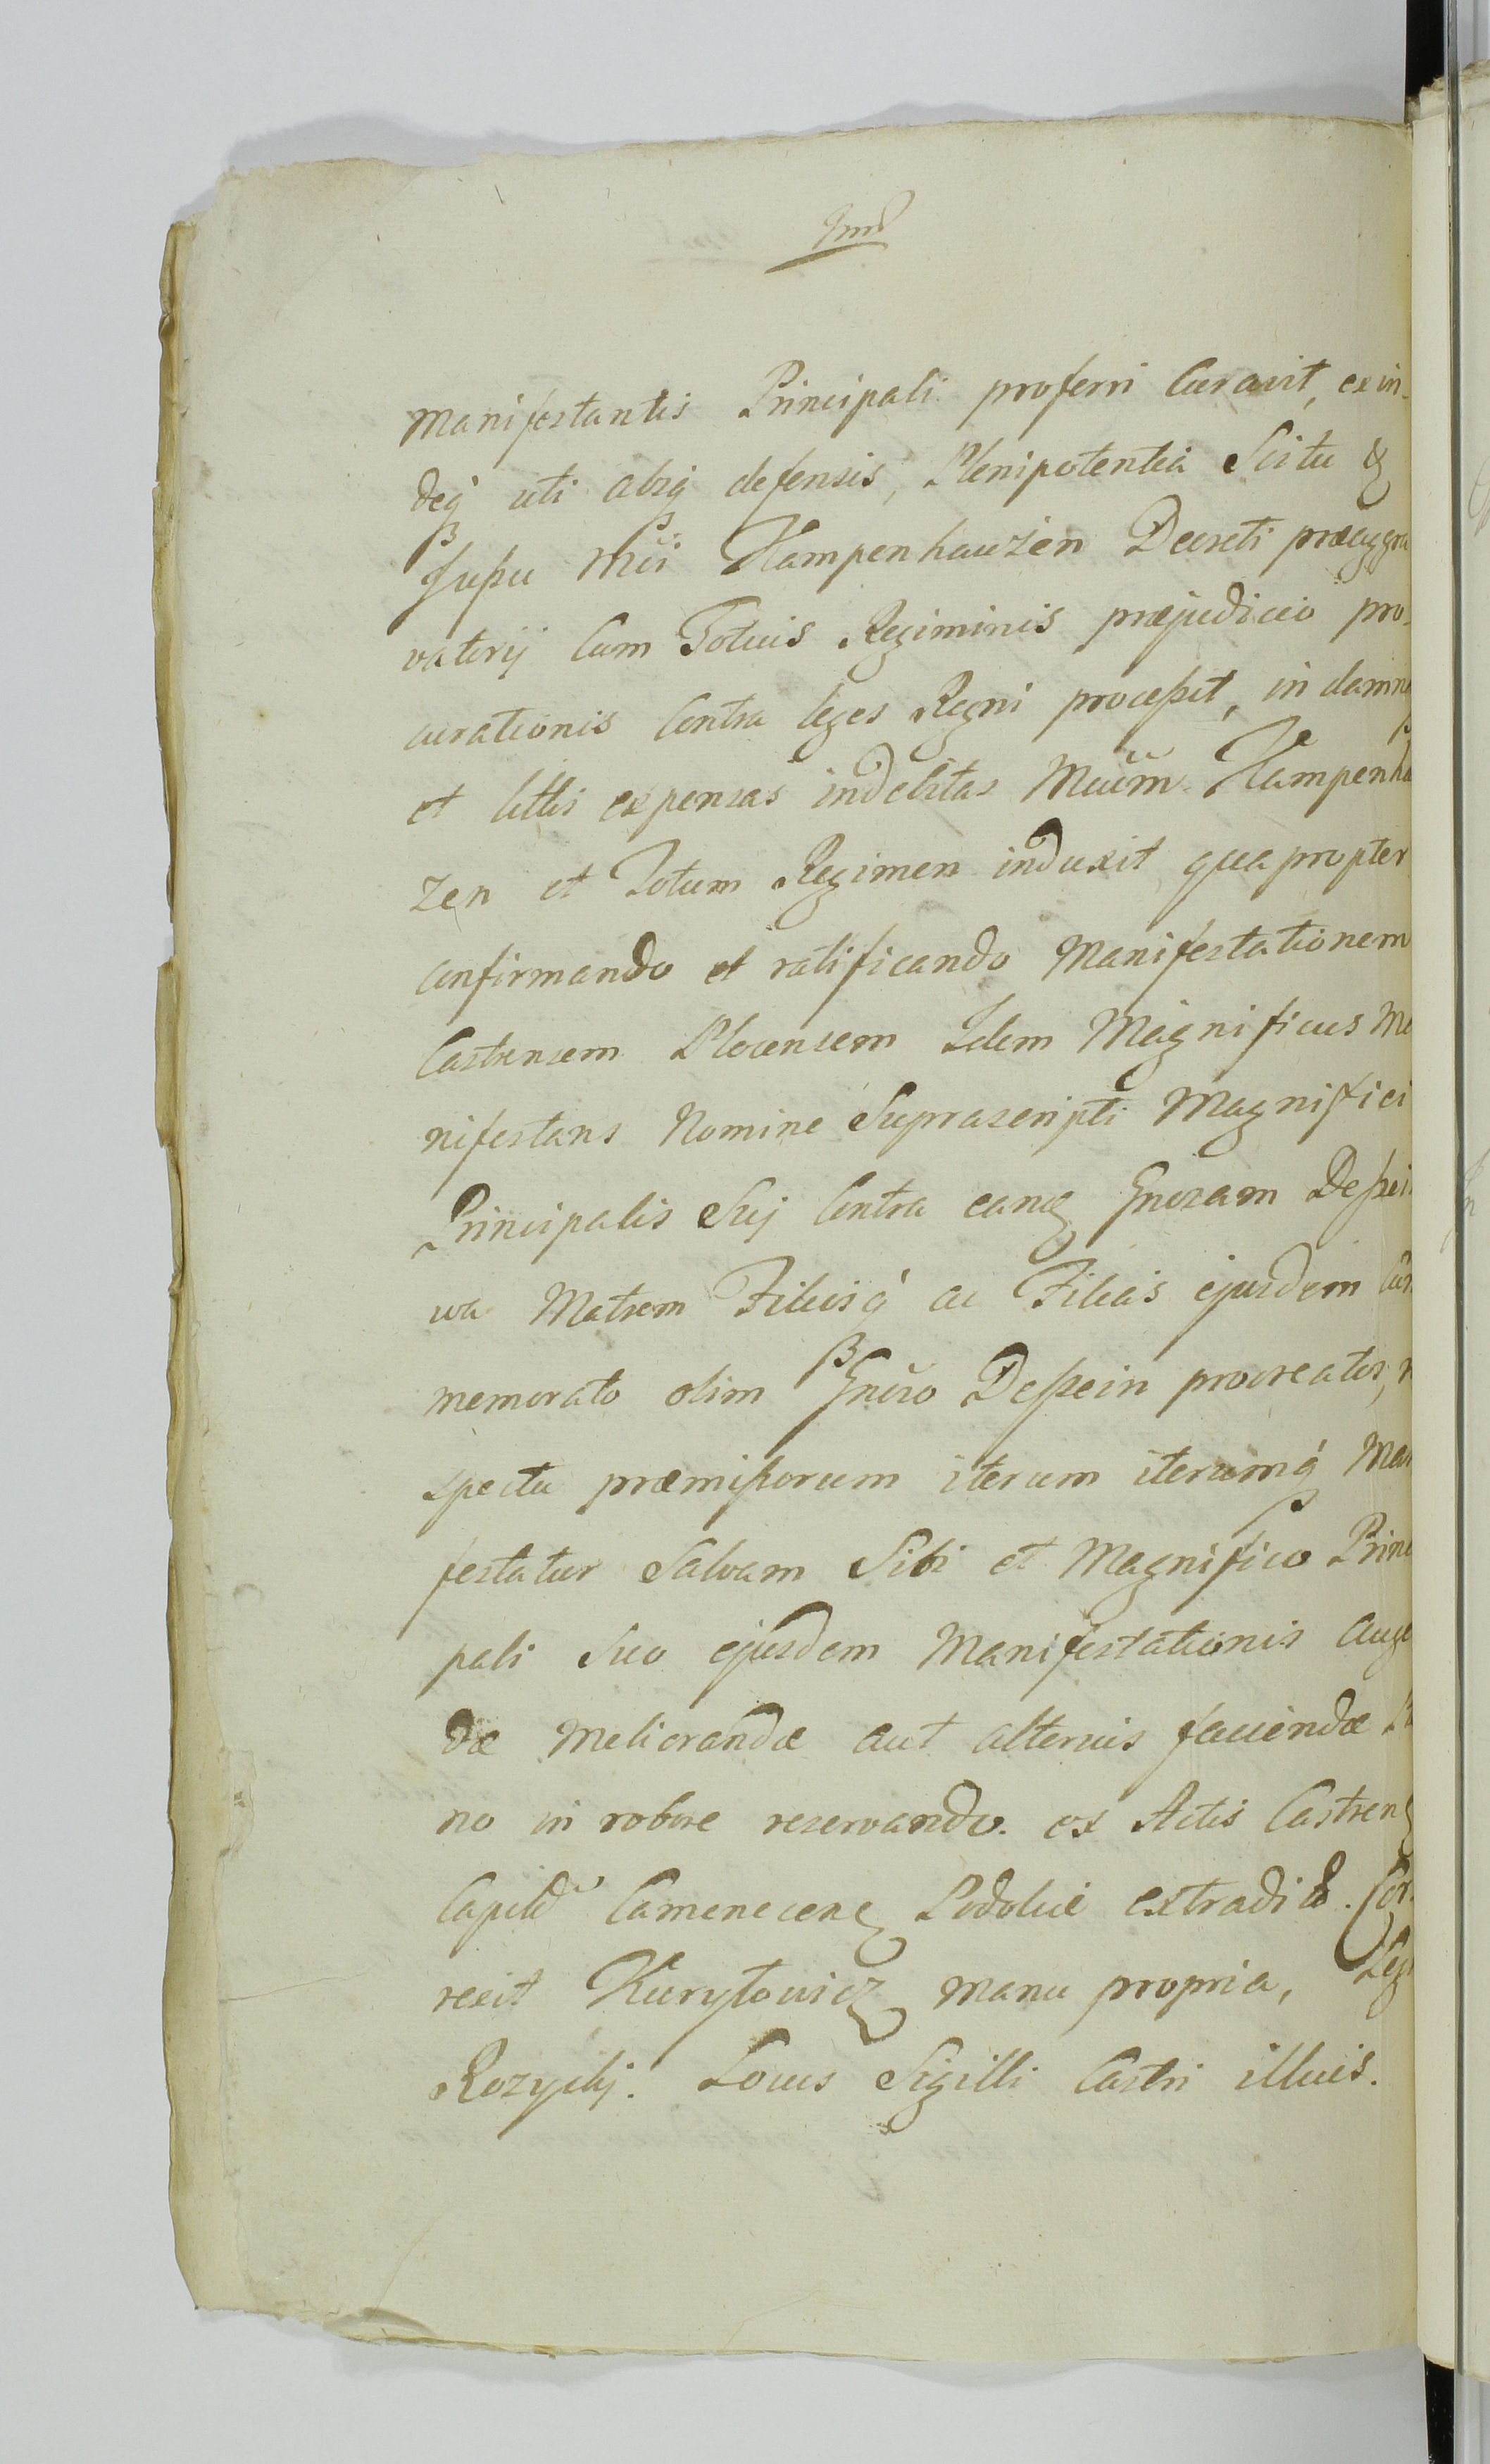 manifestantis Principali proferri Curavit, exin-
deq́ uti absq́ defensis, Plenipotentiâ Scitu &
Jußu Mci Kampenhauzen Decreti præaggra
vatorij Cum Totius Regiminis præjudicio pro-
curationis Contra leges Regni proceßit, in damna
et litis expensas indebitas Mcum Kampenha
zen et Totum Regimen induxit quapropter
confirmando et ratificando Manifestationem
Castrensem Plocensem Idem Magnificus Ma
nifestans Nomine Suprascripti Magnifici
Principalis Sui Contra eandẽ Gnosam Deßei
wa Matrem Filiisq́ ac Filias ejusdem Cum
memorato olim Gnoso Deßein procreatos, r
spectu præmißorum iterum iterumq́ Man
festatur Salvam Sibi et Magnifico Princ
pali Suo ejusdem Manifestationis auge
dæ Meliorandæ aut alterius faciendæ
no in robore reservando. ex Actis Castren
Capitl Camenecen Podoliæ extradit. Cor-
rexit Kuryłowicz manu propria, Leg
Rozycki. Locus Sigilli Castri illius.